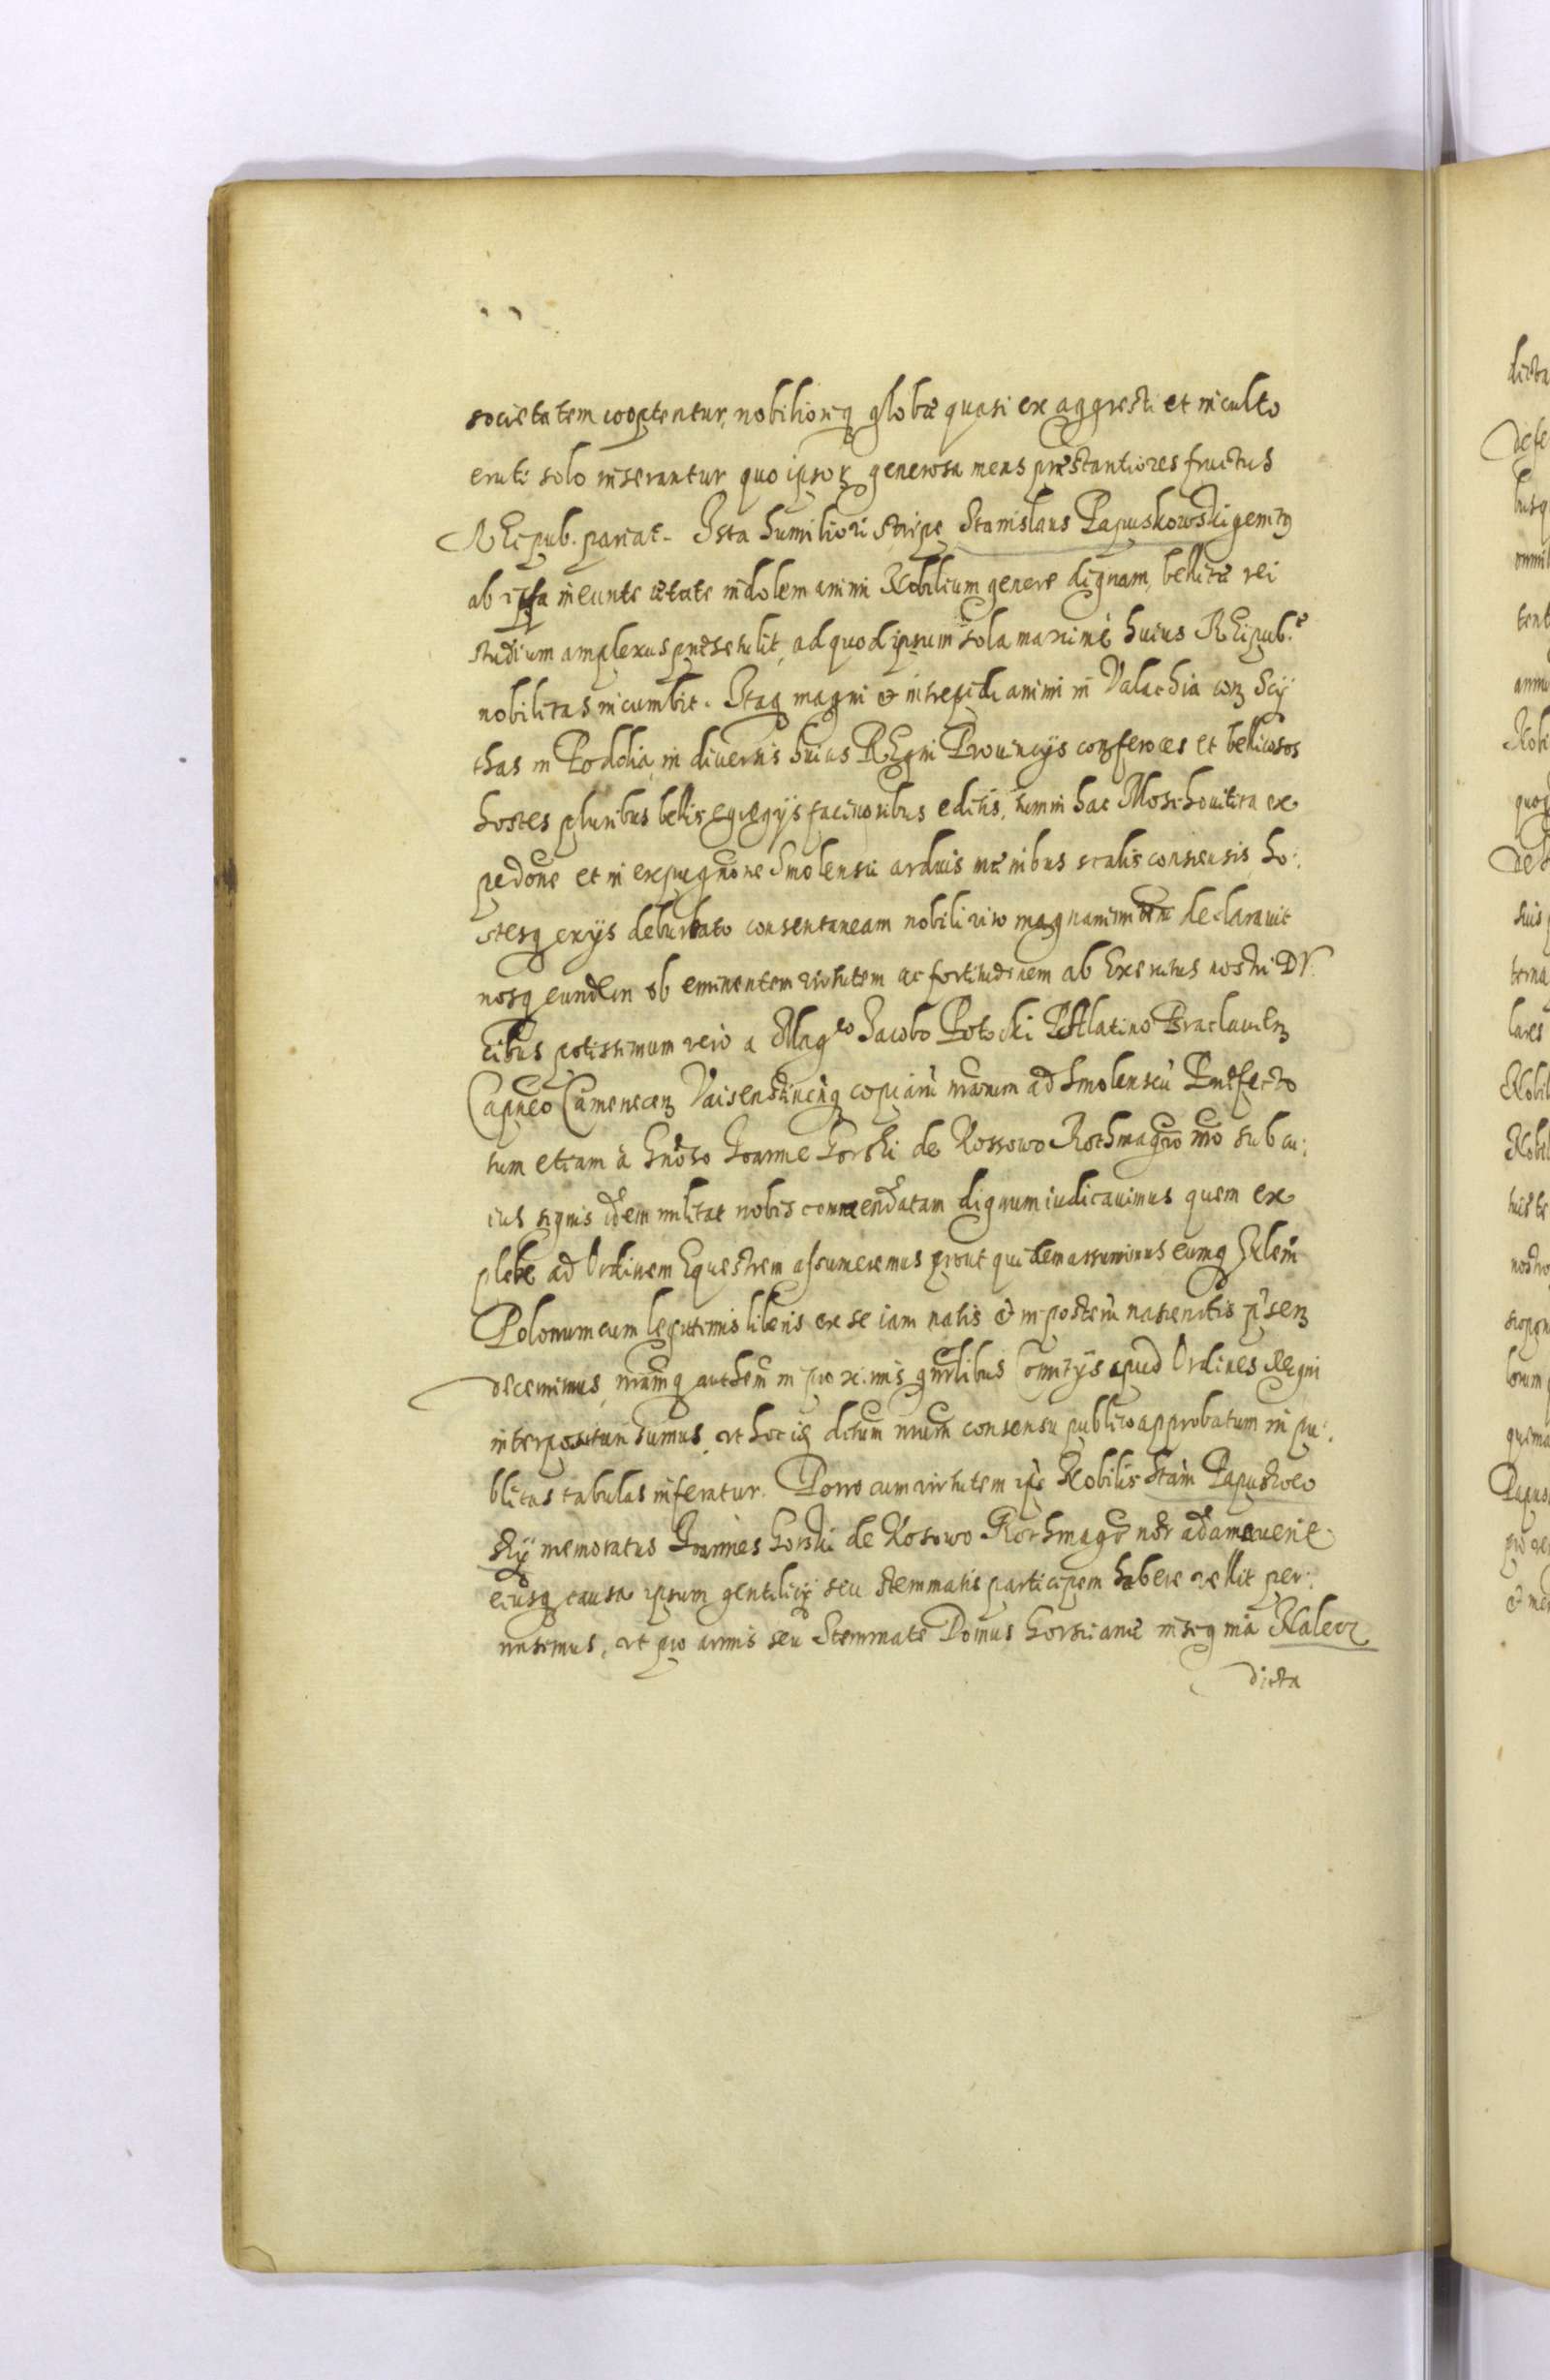 societatem cooptentur, nobilioriq globæ quasi ex aggresti et inculto
eruti solo inserantur quo ipsoꝝ generosa mens præstantiores fructus
REipub. pariat. Ista humiliori stirpe Stanislaus Papuskowski genitꝯ
ab ipsa ineunte ætate indolem animi Nobilium genere dignam, bellicæ rei
studium amplexus præsetulit, ad quod ipsum sola maximè huius REipub.ᵉ
nobilitas incumbit. Itaq magni et intrepidi animi in Valachia con Scÿ
thas in Podolia, in diuersis huius REgni Prouincijs con feroces et bellicosos
hostes pluribus bellis egregijs facinoribus editis, tum in hac Moschouitica ex
pedōne et in expugnōne Smolensci arduis mænibus scalis consensis, ho:
stesq exijs deturbato consentaneam nobili viro magnanimitem declarauit
nosq eundem ob eminentem virtutem ac fortitudinem ab Exercitus nostri DV
cibus potissimum verò a Magᶜᵒ Jacobo Potocki PAlatino Braclauien
Capneo Camenecen copiarū nrarum ad Smolenscū Præfecto
tum etiam à Gnōso Joanne Gorski de Kossowo Rothmagrō nrō sub cu:
ius signis idem militat nobis commendatam dignum iudicauimus quem ex
plebe ad Ordinem Equestrem assumeremus prout quidem assumimus eumq Nlem
Polonum cum legittimis liberis ex se iam natis et in posterū nascituris p̄sen
decernimus, nramq authem in proximis gnrlibus Comitijs apud Ordines Regni
interposituri sumus, vt hocce dictum nrum consensu publico approbatum in pu:
blicas tabulas inferatur. Porro cum virtutem ipīs Nobilis Stani Papuskow
skÿ memoratus Joannes Gorski de Kosowo Rothmagr̄ nr̄ adamauerit
eiusq causa ipsum gentilicÿ seu stemmatis participem habere vellit per:
misimus, vt pro armis seu Stemmate Domus Gorscianæ insegnia Nalecz
dicta